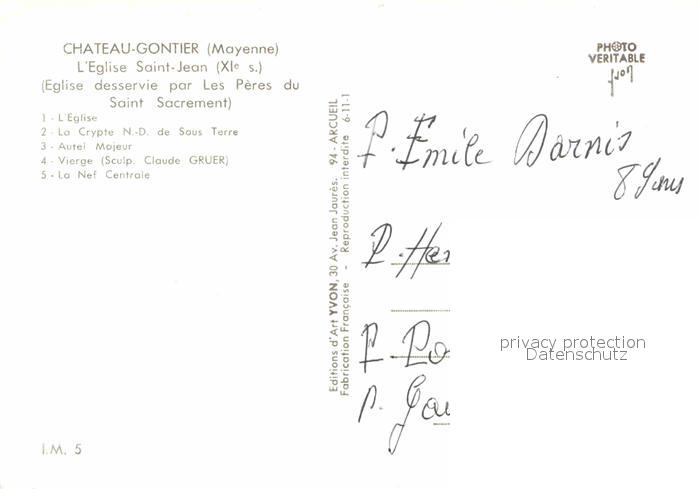 CHATEAU-GONTIER (Mayenne)
L'Eglise Saint-Jean (XIe s.)
(Eglise desservie par Les Pères du
Saint Sacrement)
1 - L'Eglise
2 - La Crypte N.-D. de Sous Terre
3 - Autel Majeur
4 - Vierge (Sculp. Claude GRUER)
5 - La Nef Centrale
I.M. 5
Editions d'Art YVON, 30 Av. Jean Jaurès. 94 - ARCUEIL
Fabrication Française - Reproduction interdite 6-11-1
PHOTO
VERITABLE
yvon
P. Emile Darnis
P. Her
P. Po
P. Gau
privacy protection
Datenschutz